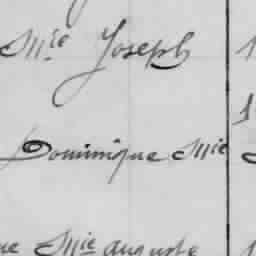 Mie Joseph 1
1
Dominique Mie
ue Mie auguste 1